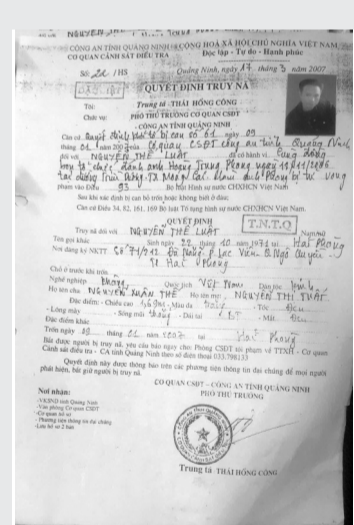 CÔNG AN TỈNH QUẢNG NINH CỘNG HOÀ XÃ HỘI CHỦ NGHĨA VIỆT NAM
CƠ QUAN CẢNH SÁT ĐIỀU TRA Độc lập - Tự do - Hạnh phúc
Số: /HS Quảng Ninh, ngày 17 tháng 3 năm 2007
QUYẾT ĐỊNH TRUY NÃ
Tôi: Trung tá THÁI HỒNG CÔNG
Chức vụ: PHÓ THỦ TRƯỞNG CƠ QUAN CSĐT
- CÔNG AN TỈNH QUẢNG NINH
Căn cứ Quyết định số 61 ngày 09
tháng 01 năm 200 của Cơ quan CSĐT công an tỉnh Quảng Ninh
đối với NGUYỄN THẾ LUẬT đã có hành vi
anh Hoàng Trung Phong ngày 11/11/2006
tại đường Triều Dương - TX Móng Cái. bị tử vong
phạm vào Điều 93 Bộ luật Hình sự nước CHXHCN Việt Nam
Sau khi xác định bị can bỏ trốn hoặc không biết ở đâu;
Căn cứ Điều 34, 82, 161, 169 Bộ luật Tố tụng hình sự nước CHXHCN Việt Nam.
QUYẾT ĐỊNH
T.N.T.Q
Truy nã đối với NGUYỄN THẾ LUẬT Nam/nữ
Tên gọi khác Sinh ngày 22 tháng 10 năm 1971 tại Hải Phòng
Nơi đăng ký NKTT Đà Nẵng P Lạc Viên Q Ngô Quyền
TP Hải Phòng
Chỗ ở trước khi trốn
Nghề nghiệp Quốc tịch Việt Nam Dân tộc Kinh
Họ tên cha NGUYỄN XUÂN THẾ Họ tên mẹ NGUYỄN THỊ THẤT
Đặc điểm: - Chiều cao Màu da - Tóc
- Lông mày - Sống mũi thẳng - Dái tai - Mắt
Đặc điểm khác
Trốn ngày 09 tháng 01 năm 2007 tại Hải Phòng
Bắt được người bị truy nã, yêu cầu báo ngay cho: Phòng CSĐT tội phạm về TTXH - Cơ quan
Cảnh sát điều tra - CA tỉnh Quảng Ninh theo số điện thoại 033.798133
Quyết định này được thông báo trên các phương tiện thông tin đại chúng để mọi người
phát hiện, bắt giữ người bị truy nã.
CƠ QUAN CSĐT - CÔNG AN TỈNH QUẢNG NINH
PHÓ THỦ TRƯỞNG
Nơi nhận:
-VKSND tỉnh Quảng Ninh
-Văn phòng Cơ quan CSĐT
-Cơ quan hồ sơ
-Phương tiện thông tin đại chúng
-Lưu hồ sơ 2 bản
Trung tá THÁI HỒNG CÔNG